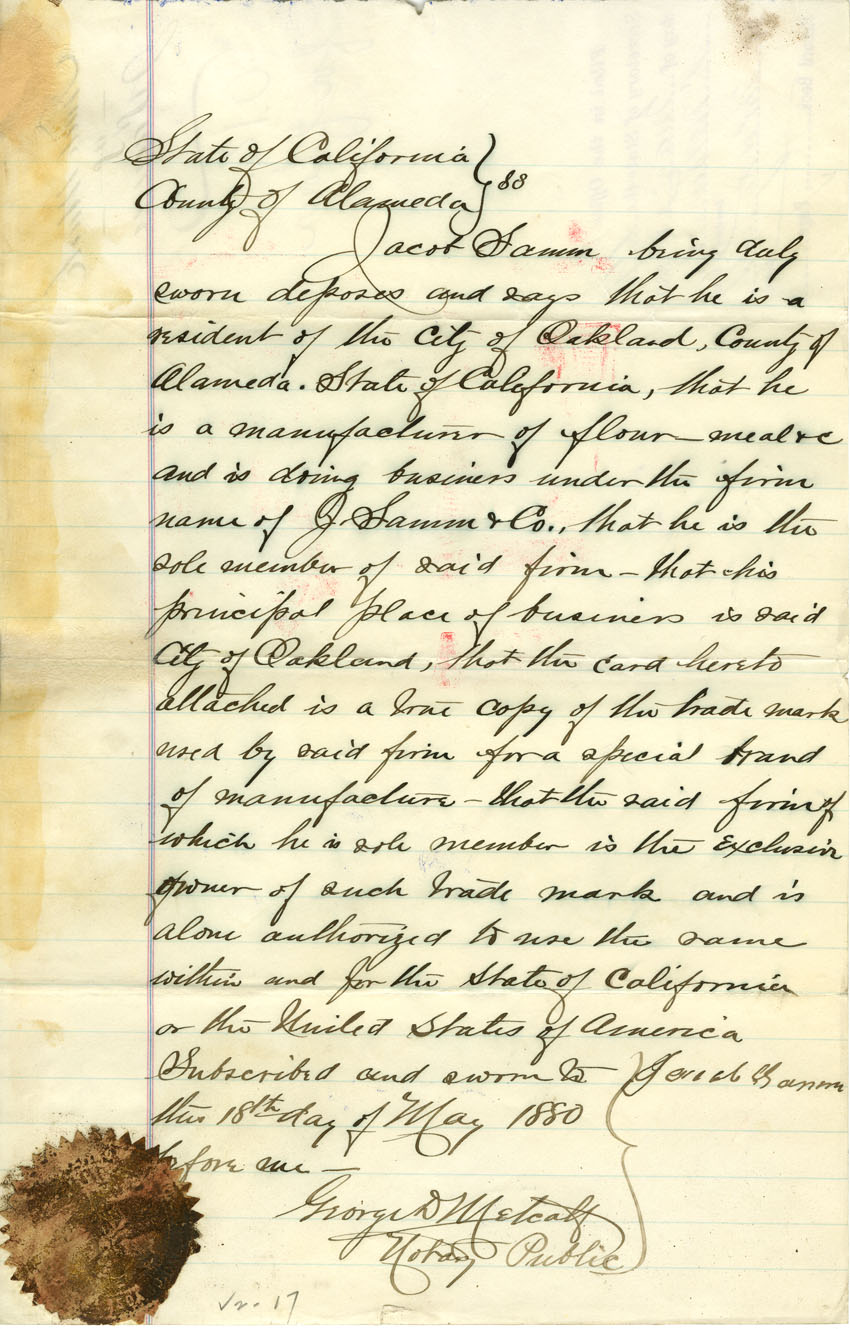 State of California
County of Alameda } ss
Jacob Samm being duly
sworn deposes and says that he is a
resident of the City of Oakland, County of
Alameda. State of California, that he
is a manufacturer of flour - meal &c
and is doing business under the firm
name of J. Samm & Co., that he is the
sole member of said firm - that his
principal place of business is said
City of Oakland, that the card hereto
attached is a true copy of the trade mark
used by said firm for a special brand
of manufacture - that the said firm of
which he is sole member is the exclusive
owner of such trade mark and is
alone authorized to use the same
within and for the State of California
or the United States of America
Subscribed and sworn to } Jacob Samm
this 18th day of May 1880
before me -
George D Metcalf
Notary Public
17